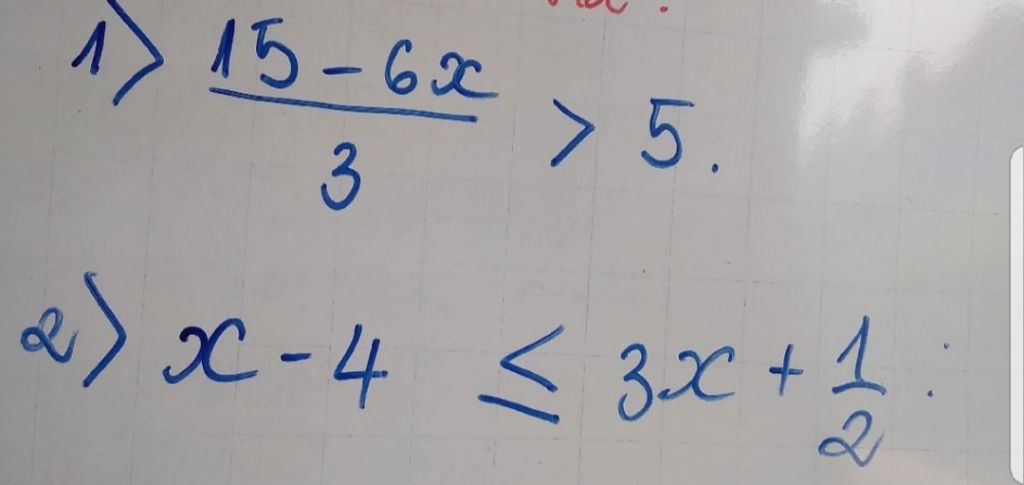 1) (15 - 6x)/3 > 5.
2) x - 4 ≤ 3x + 1/2 :